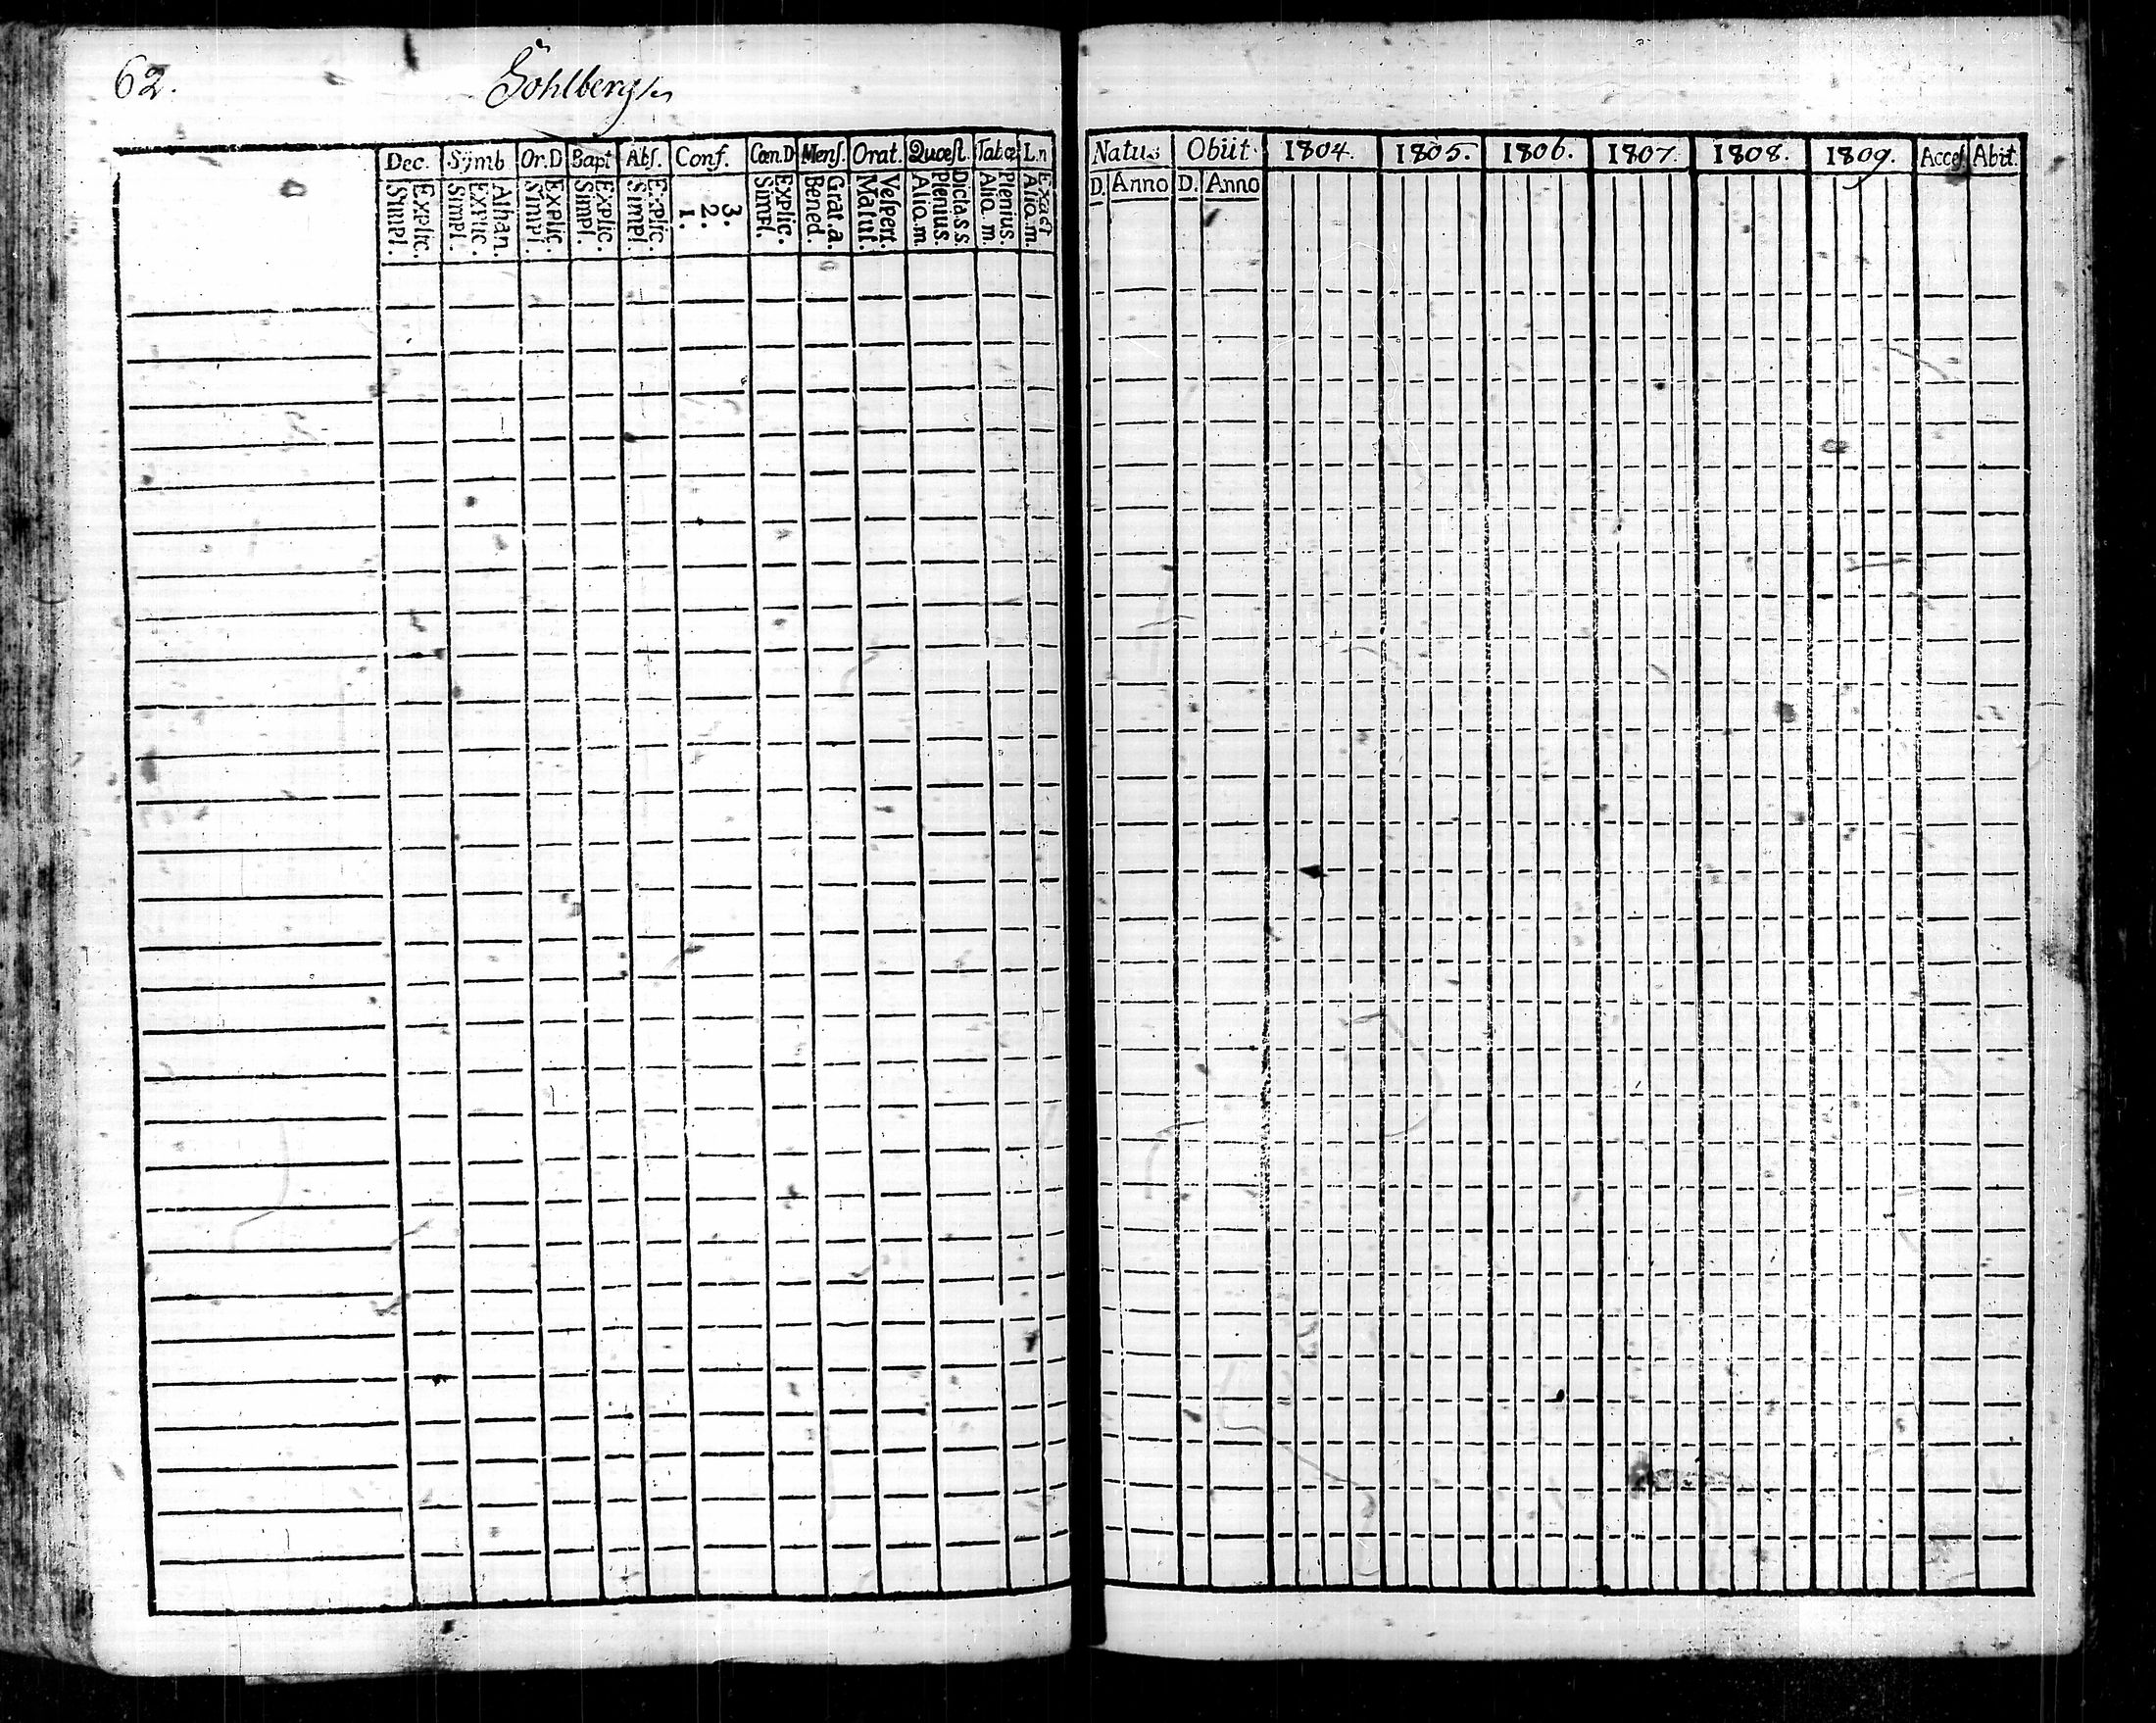 62.
Gohlberg
Dec. Symb Or.D Bapt Abs. Conf. Cœn.D Mens. Orat. Quæst. Tab.œ L.n
Simpl. Explic. Simpl. Explic. Athan. Simpl. Explic. Simpl. Explic. Simpl. Explic. 1. 2. 3. Simpl. Explic. Bened. Grat. a. Matut. Vespert. Alio. m. Plenius. Dicta. s.s. Alio. m. Plenius. Alio. m. Exact
Natus Obiit. 1804. 1805. 1806. 1807. 1808. 1809. Acces. Abit.
D. Anno D. Anno